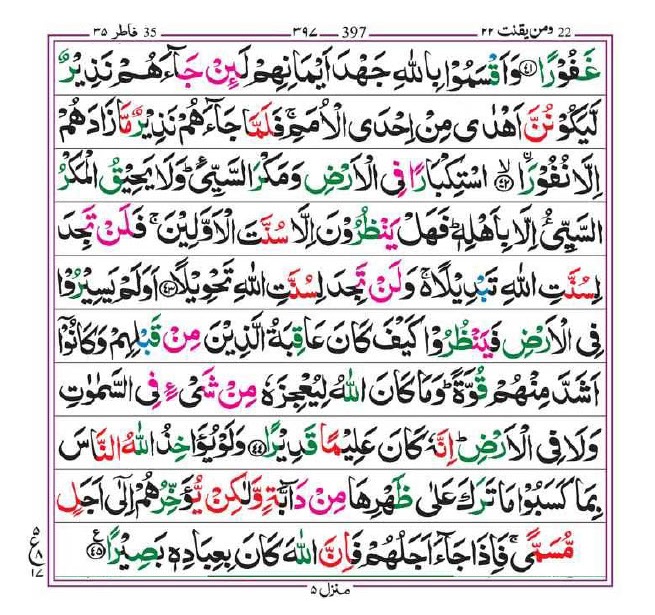 35 فاطر ۳۵ 397 ۳۹۷ 22 ومن یقنت ۲۲
غَفُوْرًا ﴿۴۱﴾ وَاَقْسَمُوْا بِاللّٰهِ جَهْدَ اَيْمَانِهِمْ لَئِنْ جَآءَهُمْ نَذِيْرٌ
لَّيَكُوْنُنَّ اَهْدٰى مِنْ اِحْدَى الْاُمَمِ ۚ فَلَمَّا جَآءَهُمْ نَذِيْرٌ مَّا زَادَهُمْ
اِلَّا نُفُوْرًا ۙ﴿۴۲﴾ اسْتِكْبَارًا فِى الْاَرْضِ وَمَكْرَ السَّيِّئِ ؕ وَلَا يَحِيْقُ الْمَكْرُ
السَّيِّئُ اِلَّا بِاَهْلِهٖ ؕ فَهَلْ يَنْظُرُوْنَ اِلَّا سُنَّتَ الْاَوَّلِيْنَ ۚ فَلَنْ تَجِدَ
لِسُنَّتِ اللّٰهِ تَبْدِيْلًا ۚ۬ وَلَنْ تَجِدَ لِسُنَّتِ اللّٰهِ تَحْوِيْلًا ﴿۴۳﴾ اَوَلَمْ يَسِيْرُوْا
فِى الْاَرْضِ فَيَنْظُرُوْا كَيْفَ كَانَ عَاقِبَةُ الَّذِيْنَ مِنْ قَبْلِهِمْ وَكَانُوْۤا
اَشَدَّ مِنْهُمْ قُوَّةً ؕ وَمَا كَانَ اللّٰهُ لِيُعْجِزَهٗ مِنْ شَىْءٍ فِى السَّمٰوٰتِ
وَلَا فِى الْاَرْضِ ؕ اِنَّهٗ كَانَ عَلِيْمًا قَدِيْرًا ﴿۴۴﴾ وَلَوْ يُؤَاخِذُ اللّٰهُ النَّاسَ
بِمَا كَسَبُوْا مَا تَرَكَ عَلٰى ظَهْرِهَا مِنْ دَآبَّةٍ وَّلٰكِنْ يُّؤَخِّرُهُمْ اِلٰٓى اَجَلٍ
مُّسَمًّى ۚ فَاِذَا جَآءَ اَجَلُهُمْ فَاِنَّ اللّٰهَ كَانَ بِعِبَادِهٖ بَصِيْرًا ﴿۴۵﴾ ع
۵
ع ۸
۱۷
منزل ۵